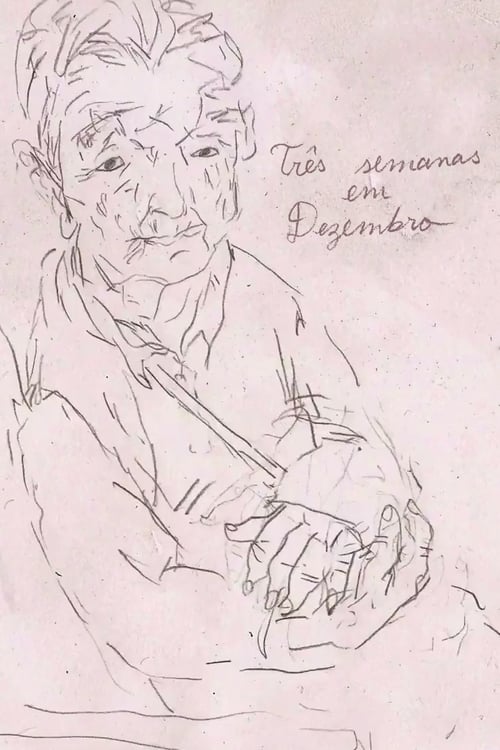 Três semanas
em
Dezembro